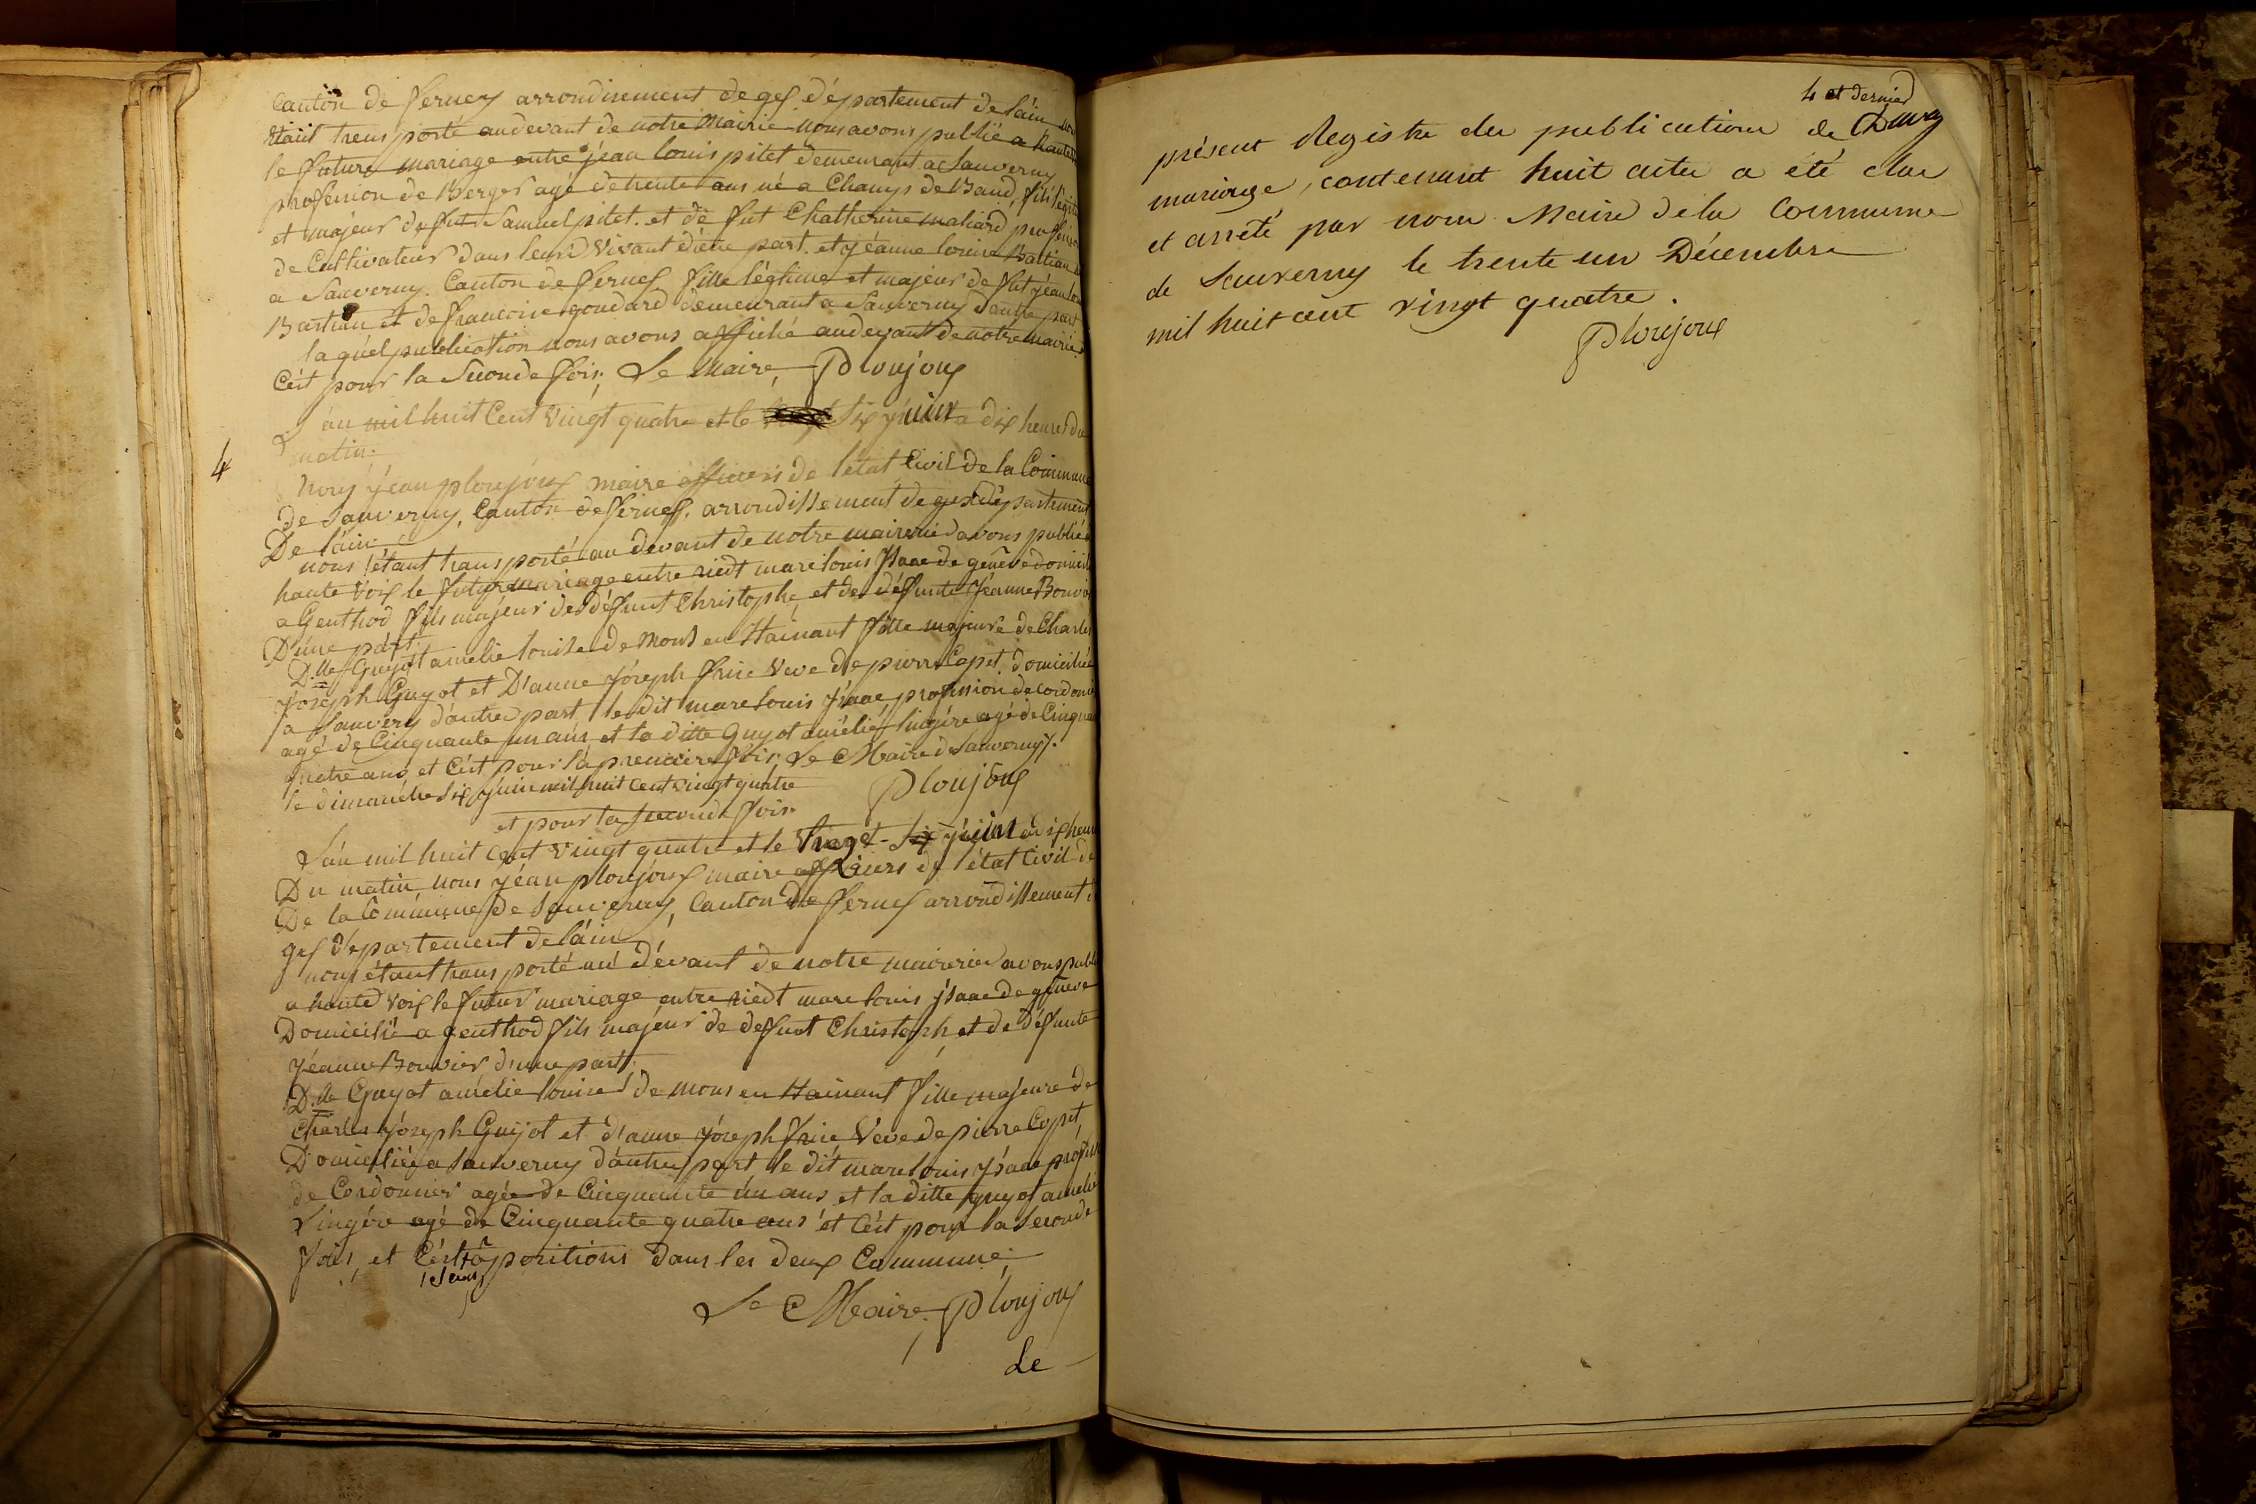 Canton de ferney arrondisement de gex département de láin nous
étaiit trens porté audevant de notre Mairie nous avons publié a haute
le future mariage entre jéan louis pitet demeurant a Sauverny
profession de Berger agé de trente ans né a Champ de Baud, fils légit
et majeur de fut Samuel pitet. et de fut Chatherine maliard profesion
de Cultivateur dans leurs vivant d'une part. et jéanne louise Bastian
a Sauverny. Canton de ferney fille légtime et majeur de fut jéan lou
Bastian et de francoise goudard demeurant a Sauverny d'autre part
laquel publication nous avons affiché audevant de notre mairie
Cést pour la Seconde fois, Le Maire, Ploujoux
L'an mil huit Cent vingt quatre et le six juin a dix heures du
matin.
4
Nous jéan ploujoux maire officiers de létat Civil de la Commune
de Sauverny, Canton de ferney. arrondissement de gex département
De láin.
nous étant transporté au devant de notre mairerie avons publié à
haute voix le futur mariage entre riedt marc louis Isaac de genève domicilié
a Genthod fils majeur de défunt Christophe, et de défunte Jéanne Bouvier
D'une part.
D.lle Guyot amélie louise de Mons en Hainaut fille majeure de Charles
Joséph Guyot et D'anne Joséph frise Veve de pierre Copet, domiciliée
a Sauverny d'autre part, le dit marc Louis Isaac, profession de cordonier
agé de Cinquante un ans et la ditte Guyot amélie lingére agé de Cinquante
quatre ans, et Cést pour la premiere fois, Le Maire de Sauverny.
le dimanche six juin mil huit cent vingt quatre Ploujoux
et pour la seconde fois.
L'an mil huit cent vingt quatre et le vingt-six juin a dix heures
Du matin, nous jéan ploujoux maire officiers de l'état Civil de
De la Commune de Sauverny, Canton de ferney arrondissement de
gex département de láin
nous étant transporté au dévant de notre mairerie avons publié
a haute voix le futur mariage entre riedt marc louis jsaac de genève
Domicilié a genthod fils majeur de defunt Christoph, et de défunte
Jéanne Bouvier d'une part.
D.lle Guyot amélie louise de mons en Hainaut fille majeure de
Charles Joséph Guyot et d'anne joseph frise Veve de pierre Copet,
Domiciliée a Sauverny dáutre part le dit marc louis jsaac profession
de Cordonnier agée de Cinquante un ans et la ditte guyot amélie
Lingére agé de Cinquante quatre ans et Cést pour la seconde
fois, et Cést positions dans les deux Commune.
Le Maire, Ploujoux
Le
4 et dernier
présent Registre des publications de
mariage, contenant huit actes a été clos
et arrêté par nous Maire de la Commune
de Sauverny le trente un Décembre
mil huit cent vingt quatre.
Ploujoux